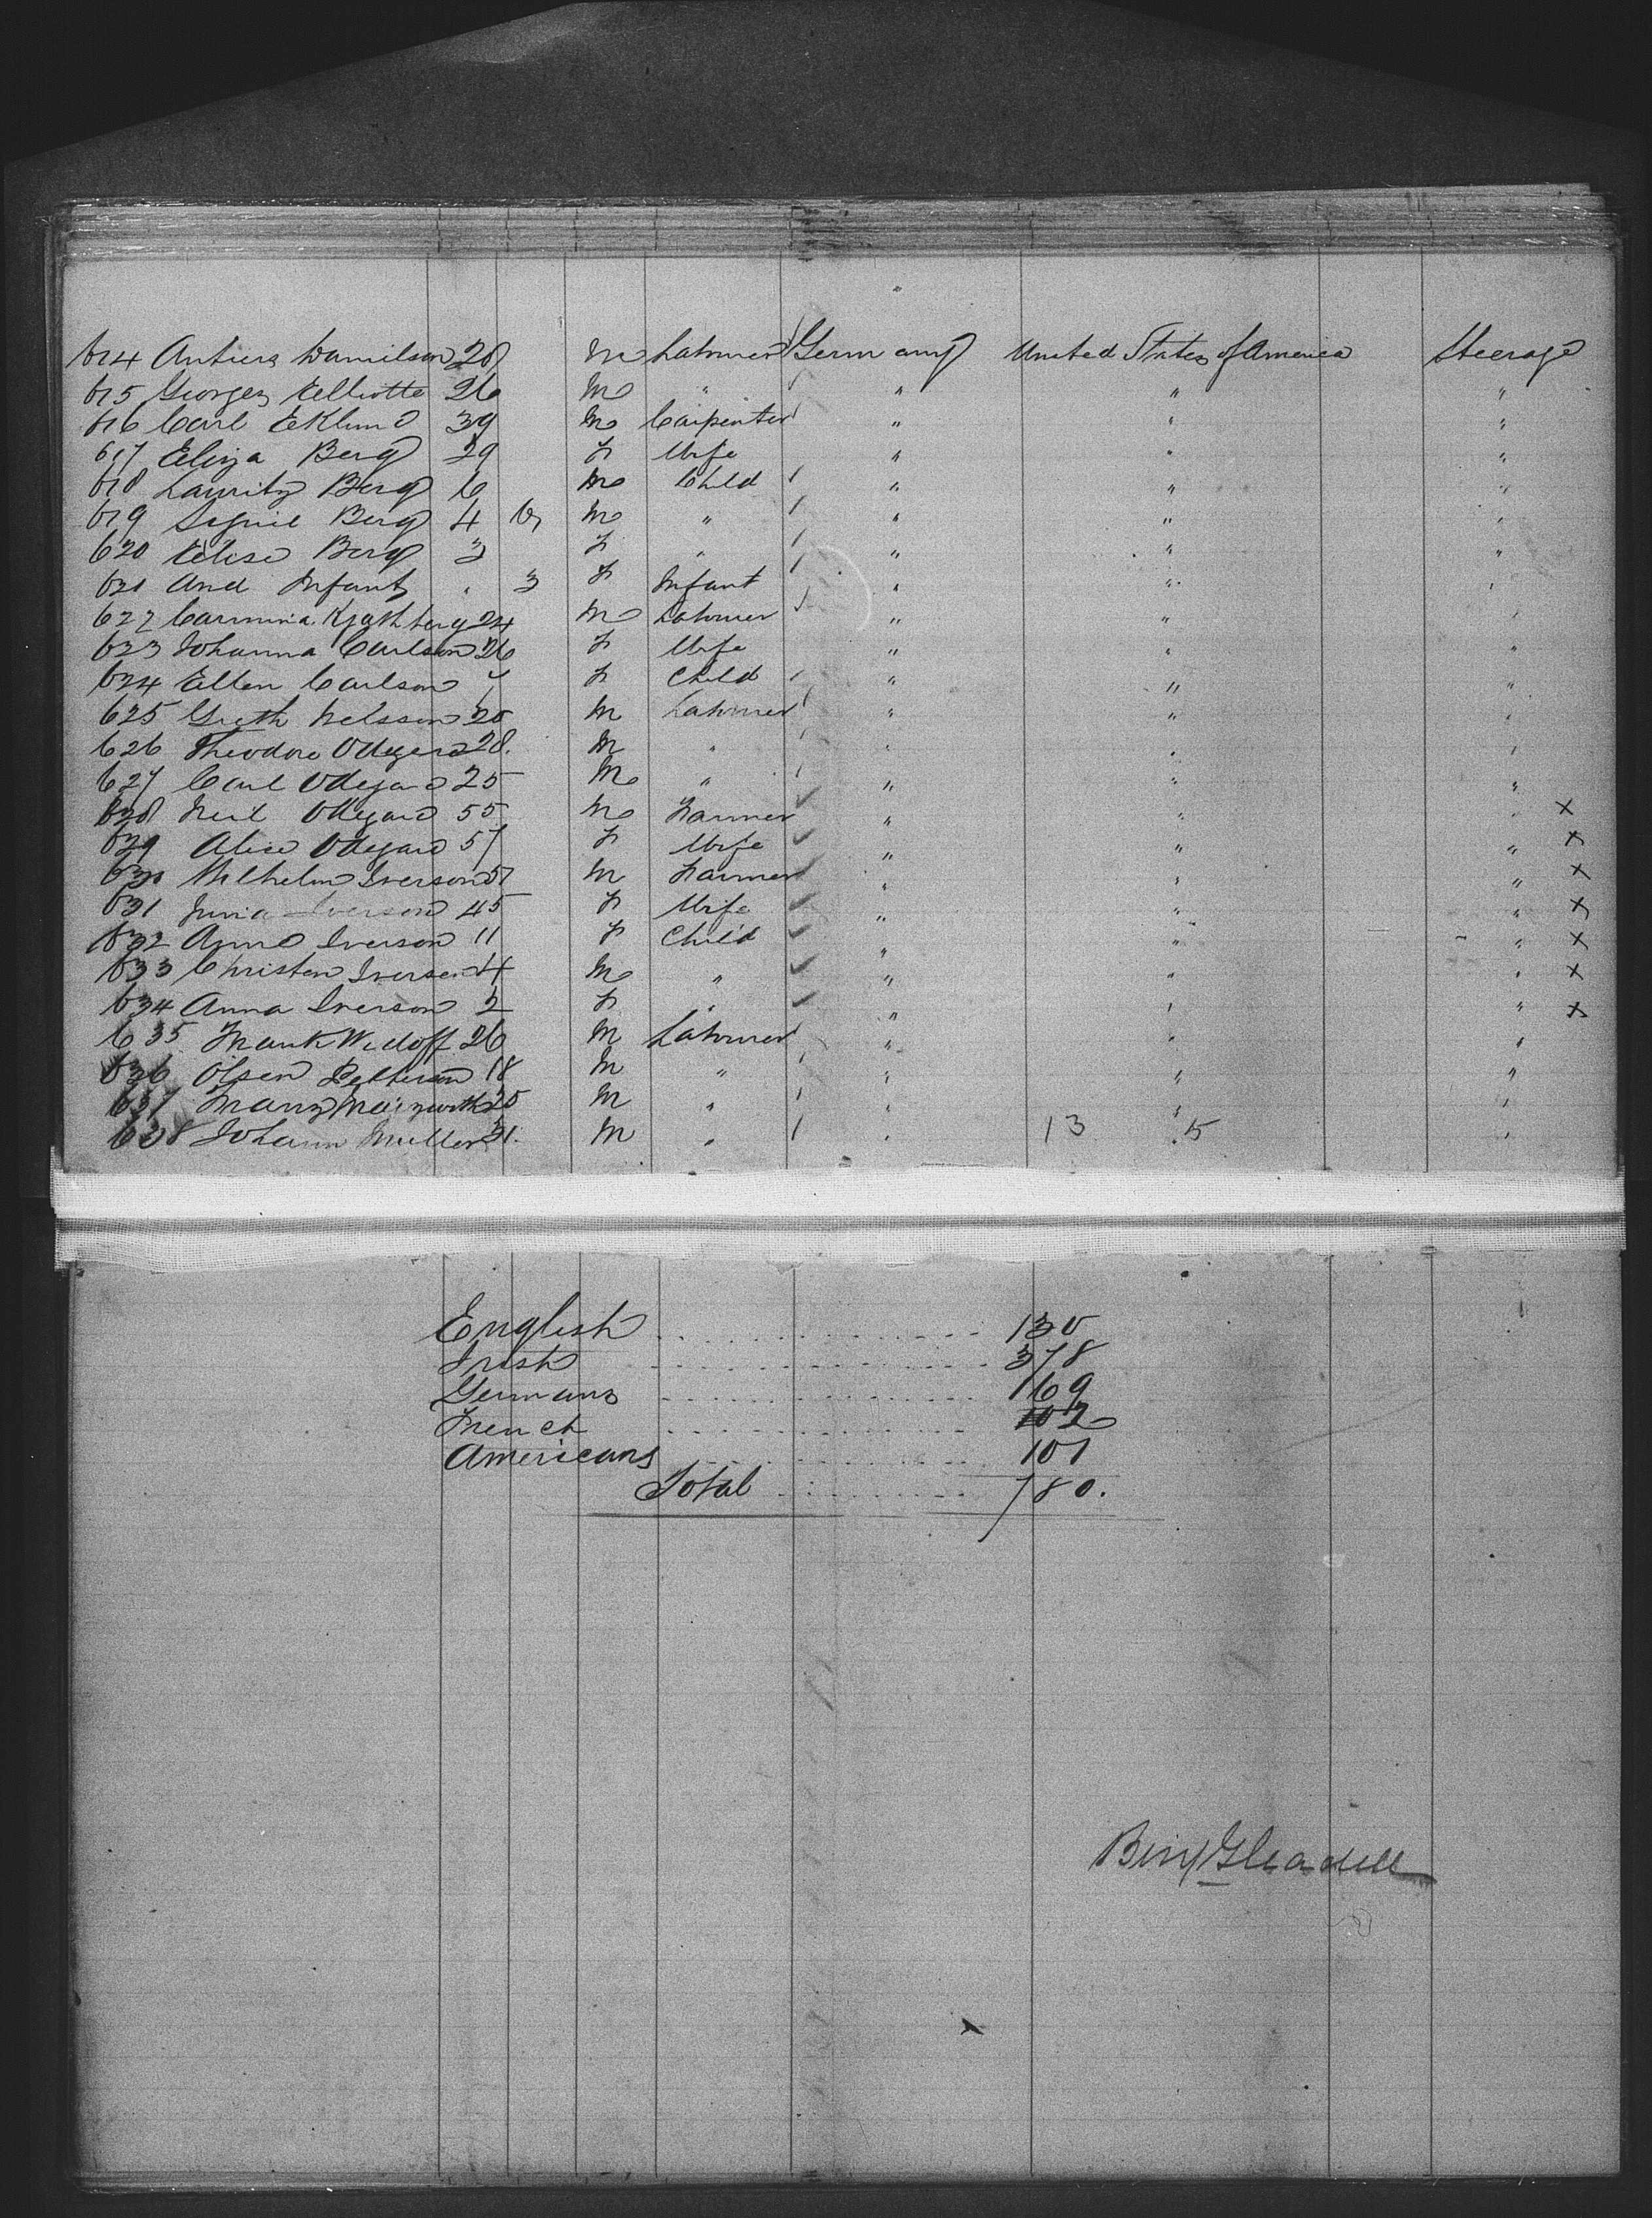 "
614 Antiers Danielson 28 M Labourer Germany United States of America Steerage
615 Georges Elliotte 26 M " " " "
616 Carl Eklund 39 M Carpenter " " "
617 Eliza Berg 29 F Wife " " "
618 Lauritz Berg 6 M Child " " "
619 Berg 4 M " " " "
620 Elise Berg 3 F " " " "
621 And Infant " 3 F Infant " " "
622 24 M Labourer " " "
623 Johanna Carlson 26 F Wife " " "
624 Ellen Carlson F Child " " "
625 Nelsson 20 M Labourer " " "
626 Theodore Odegard 28. M " " " "
627 Carl Odegard 25 M " " " "
628 Neil Odegard 55 M Farmer " " " x
629 Alice Odegard 57 F Wife " " " x
630 Wilhelm Iverson M Farmer " " " x
631 Iverson 45 F Wife " " " x
632 Anne Iverson 11 F Child " " " x
633 Christen Iversen 4 M " " " " x
634 Anna Iverson 2 F " " " " x
635 Frank Widoff 26 M Labourer " " "
636 Olsen Petterson 18 M " " " "
637 25 M " " " "
638 Johann Muller 31. M " " 13 " 5 "
English 130
Irish 378
Germans 169
French 102
Americans 101
Total 780.
Benj Gleadell